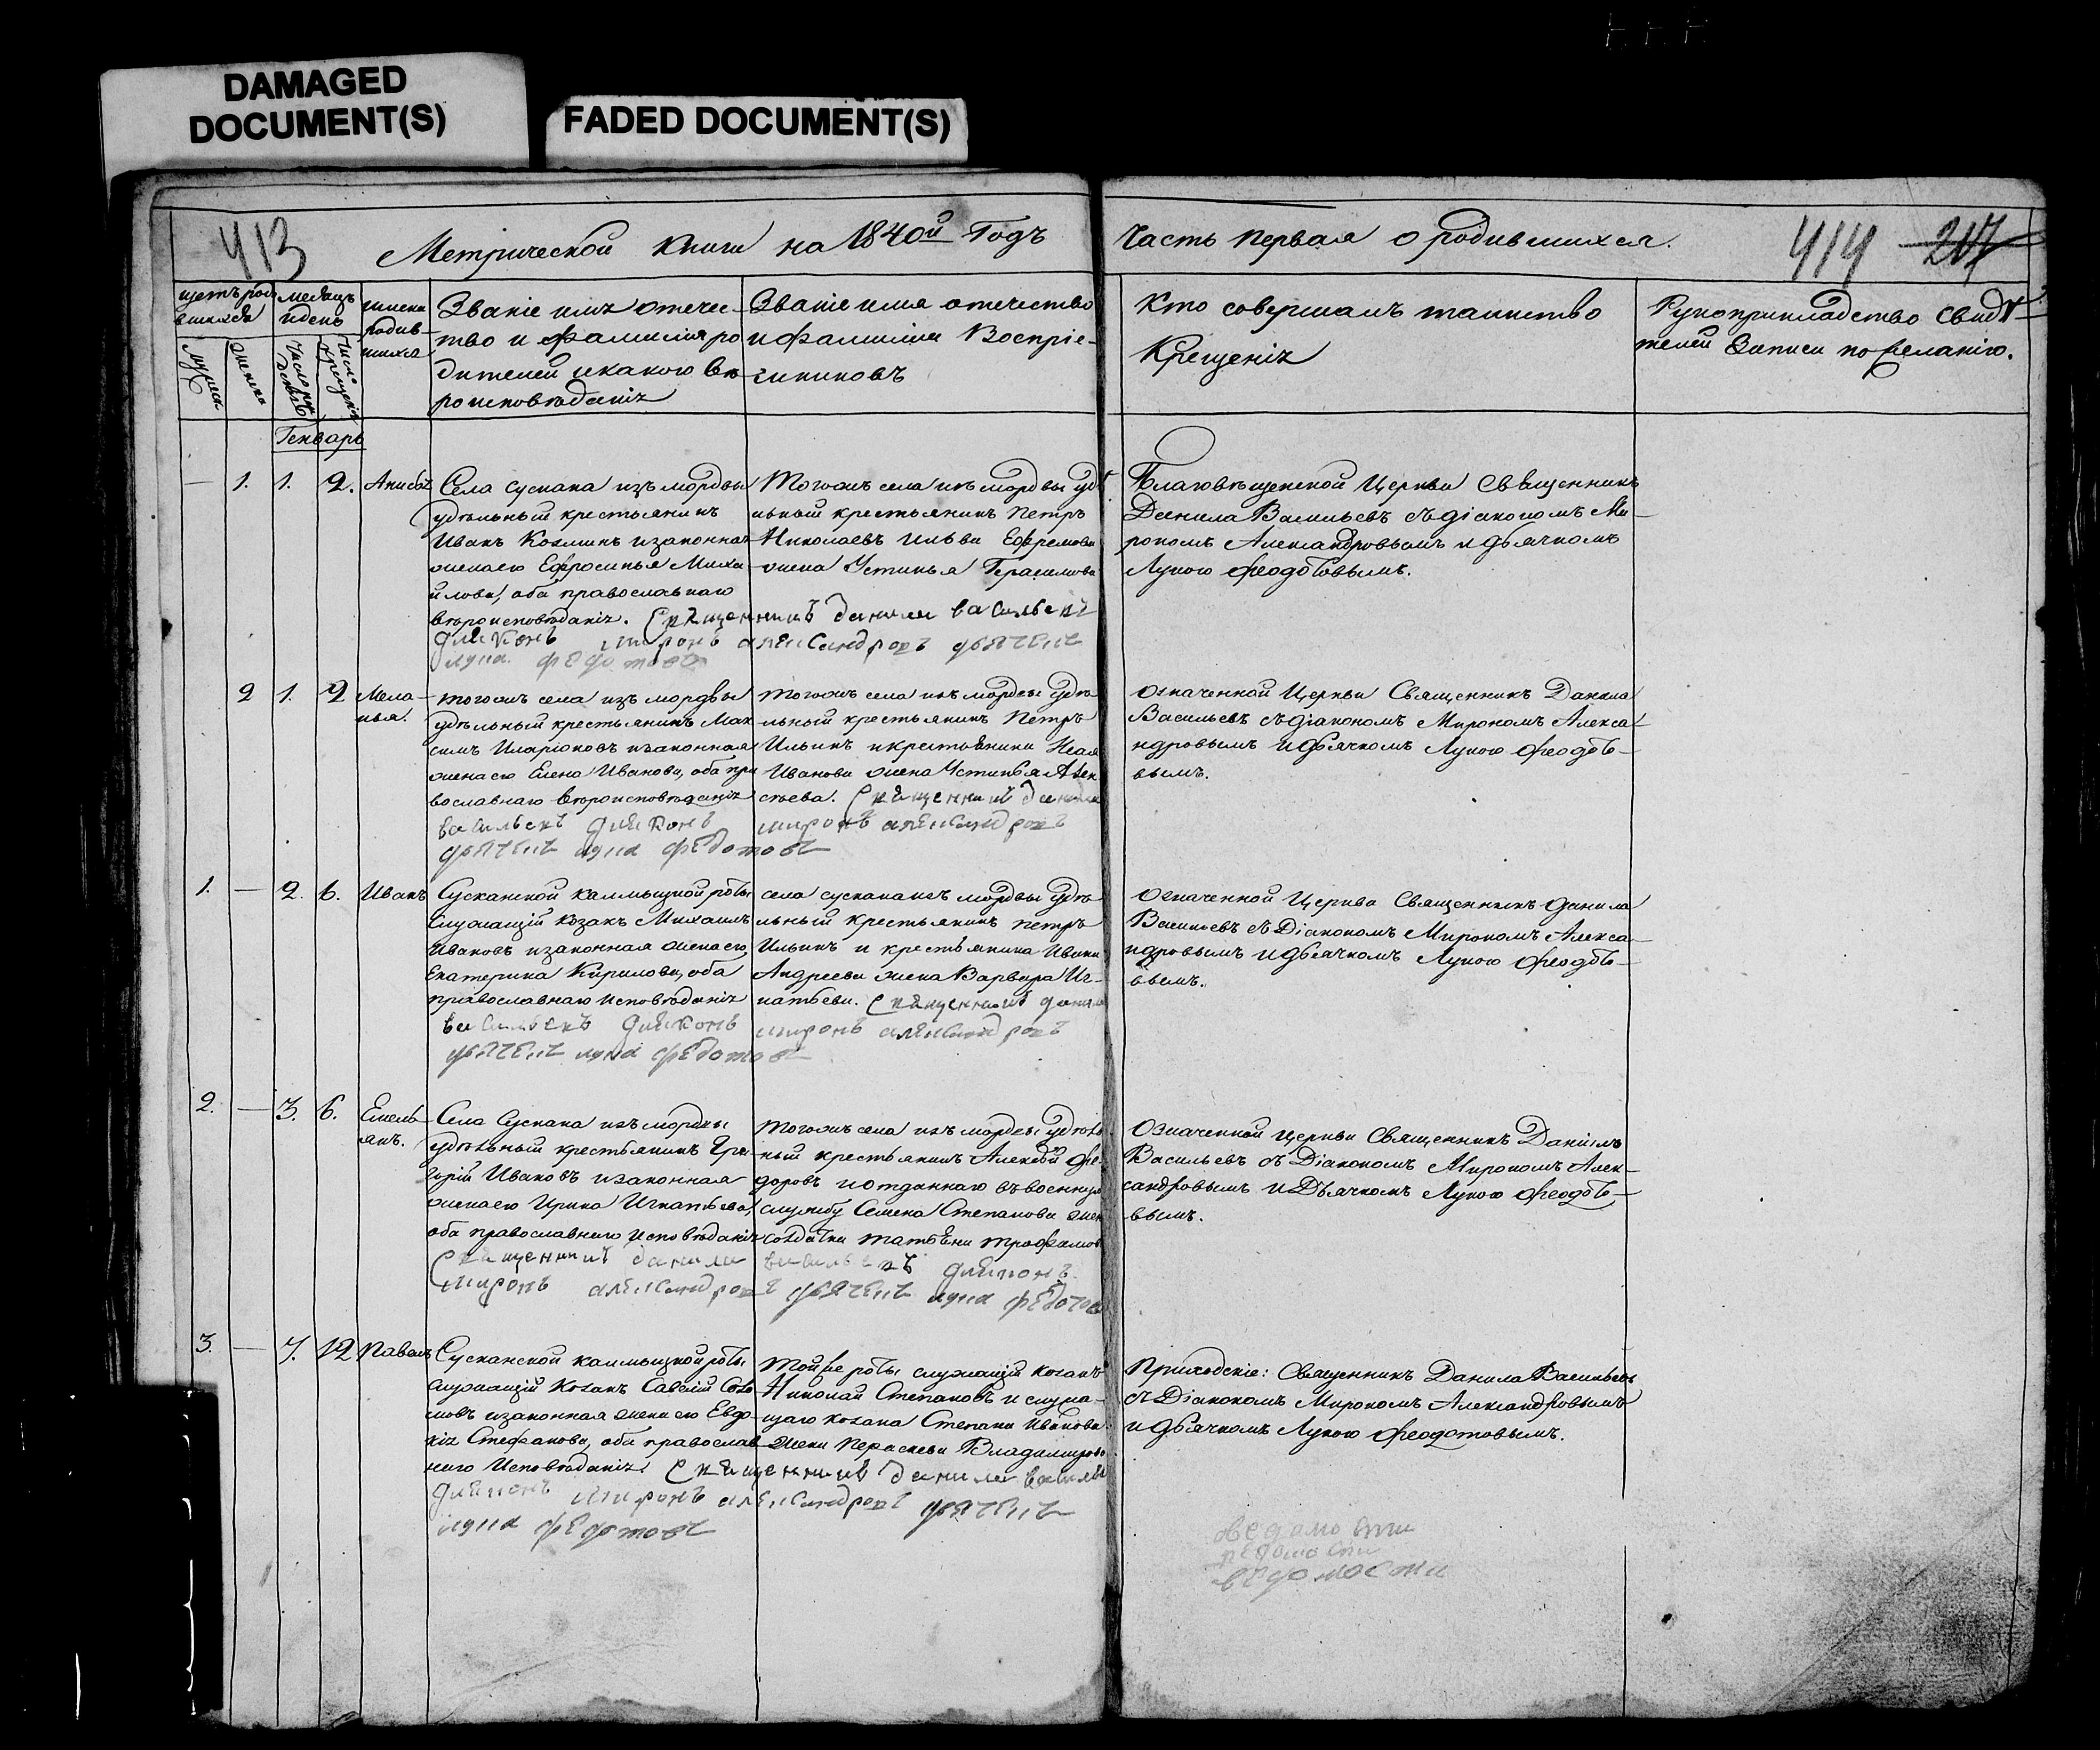 DAMAGED
DOCUMENT(S)
FADED DOCUMENT(S)
413
Метрической Книги на 1840й Годъ
Часть первая о родившихся.
414 217
щетъ роди
вшихся
месяцъ
и день
имена
родив-
шихся
Званіе имя отечес-
тво и фамилія ро
дителей и какого вѣ
роисповѣданія
Званіе имя отечество
и фамилія Воспріе-
мниковъ
Кто совершалъ таинство
Крещенія
Рукоприкладство свидѣ-
телей Записи по желанію.
Генварь
— 1. 1. 2.
Села Сускана изъ мордвы
удѣльный крестьянинъ
Иванъ Козминъ и законная
жена его Ефросинья Миха
йлова, оба православнаго
вѣроисповѣданія. Священникъ данила васильевъ
диаконъ миронъ александровъ дьячекъ
лука федотовъ
Тогожъ села изъ мордвы удѣ
льный крестьянинъ Петръ
Николаевъ Ильи Ефремова
жена Устинья Герасимова
Благовѣщенской Церкви Священникъ
Данила Васильевъ съ діакономъ Ми-
рономъ Александровымъ и дьячкомъ
Лукою Феодотовымъ.
2 1. 2 Мела-
нья.
тогожъ села изъ мордвы
удѣльный крестьянинъ Мак
симъ Иларіоновъ и законная
жена его Елена Иванова, оба пра
вославнаго вѣроисповѣданія
васильевъ диаконъ миронъ александровъ
дьячекъ лука федотовъ
тогожъ села изъ мордвы удѣ
льный крестьянинъ Петръ
Ильинъ и крестьянина
Иванова жена Устинья
Священникъ данила
означенной Церкви Священникъ Данила
Васильевъ съ діакономъ Мирономъ Алекса-
ндровымъ и дьячкомъ Лукою Феодото-
вымъ.
1. — 2. 6. Иванъ
Сусканской калмыцкой роты
служащій козакъ Михаилъ
Ивановъ и законная жена его
Екатерина Кирилова, оба
православнаго исповѣданія
васильевъ диаконъ миронъ александровъ
дьячекъ лука федотовъ
села сускана изъ мордвы удѣ
льный крестьянинъ петръ
Ильинъ и крестьянина Ивана
Андреева жена Варвара Иг-
натьева. Священникъ данила
означенной Церкви Священникъ Данила
Васильевъ съ Діакономъ Мирономъ Алекса-
ндровымъ и дьячкомъ Лукою Феодото-
вымъ.
2. — 3. 6. Емель
янъ.
Села Сускана изъ мордвы
удѣльный крестьянинъ Гри-
горій Ивановъ и законная
жена его Ирина Игнатьева,
оба православнаго исповѣданія
Священникъ данила васильевъ диаконъ
миронъ александровъ дьячекъ лука федотов
тогожъ села изъ мордвы удѣль
ный крестьянинъ Алексѣй Фе-
доровъ и отданнаго въ военную
службу Семена Степанова жен
солдатка татьяна трофимов
означенной церкви Священникъ Данiилъ
Васильевъ съ Діакономъ Мирономъ Алек-
сандровымъ и Дьячкомъ Лукою Феодото-
вымъ.
3. — 7. 12 Павелъ
Сусканской калмыцкой роты
служащій Козакъ Савелій
и законная жена его Евдо-
кія Стефанова, оба православ
наго Исповѣданія. Священникъ данила василь
диаконъ миронъ александровъ дьячекъ
лука федотовъ
Той же роты служащій козакъ
Николай Степановъ и служа-
щаго козака Степана Иванова
жена Параскева Владимиров
Приходскіе: Священникъ Данила Васильевъ
съ Діакономъ Мирономъ Александровымъ
и дьячкомъ Лукою Феодотовымъ.
ведомости
ведомости
ведомости